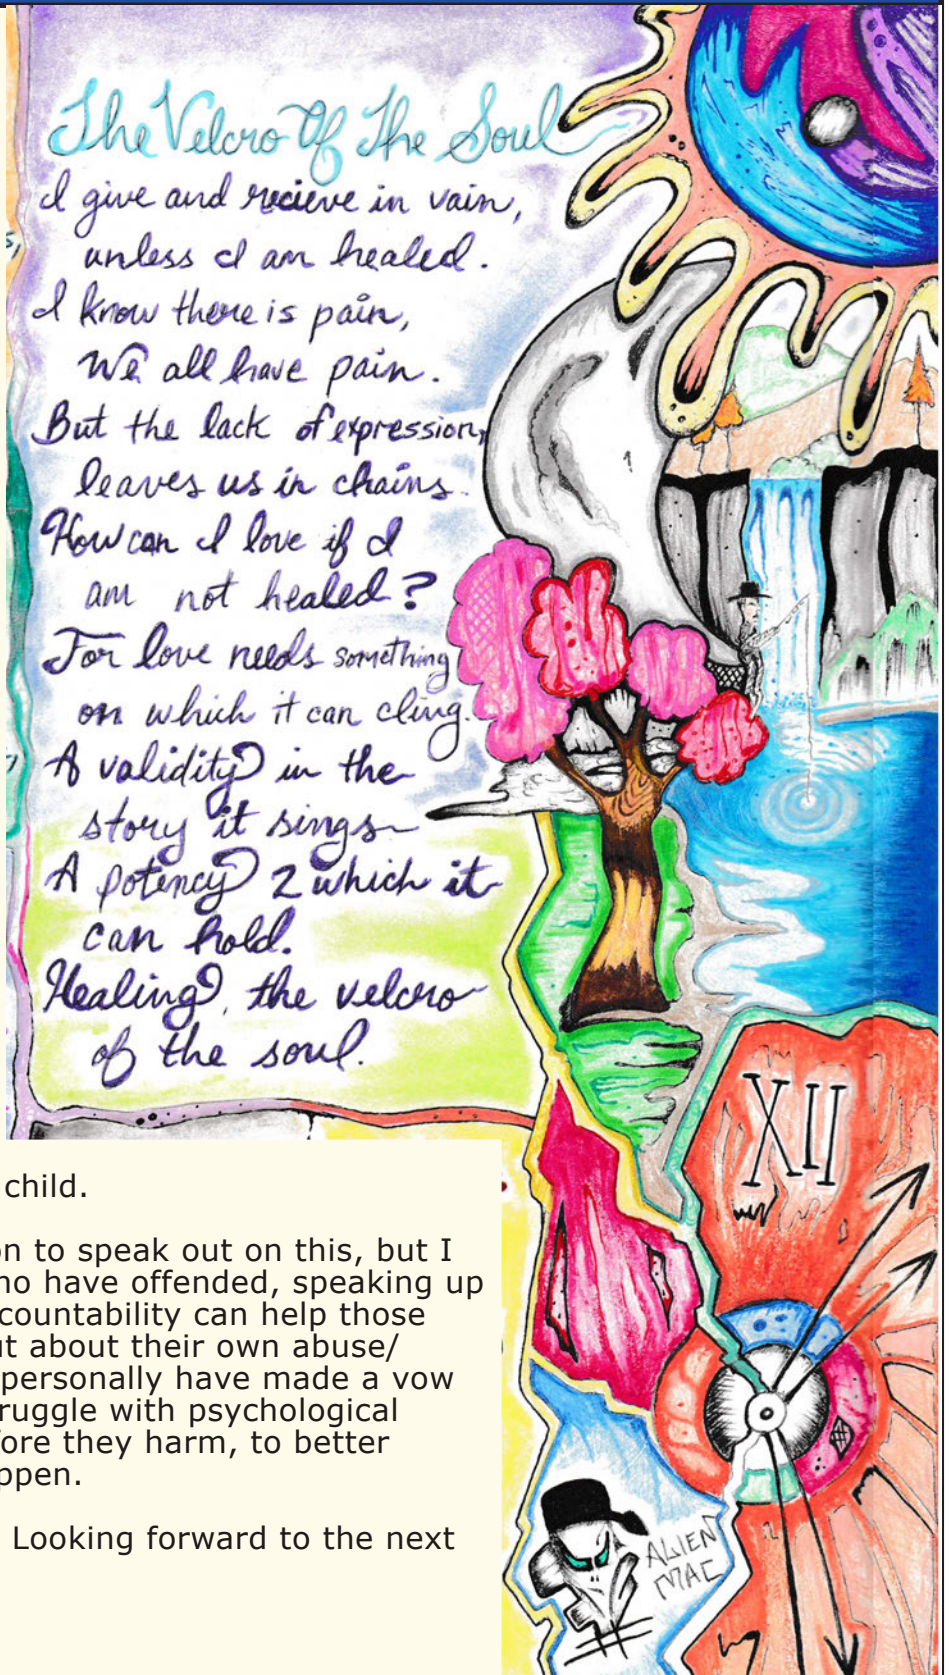 The Velcro Of The Soul
I give and recieve in vain,
unless I am healed.
I know there is pain,
We all have pain.
But the lack of expression,
leaves us in chains.
How can I love if I
am not healed?
For love needs something
on which it can cling.
A validity in the
story it sings
A potency 2 which it
can hold.
Healing, the velcro
of the soul.
s,
XII
child.
on to speak out on this, but I
ho have offended, speaking up
ccountability can help those
ut about their own abuse/
personally have made a vow
ruggle with psychological
fore they harm, to better
ppen.
Looking forward to the next
ALIEN
MAC